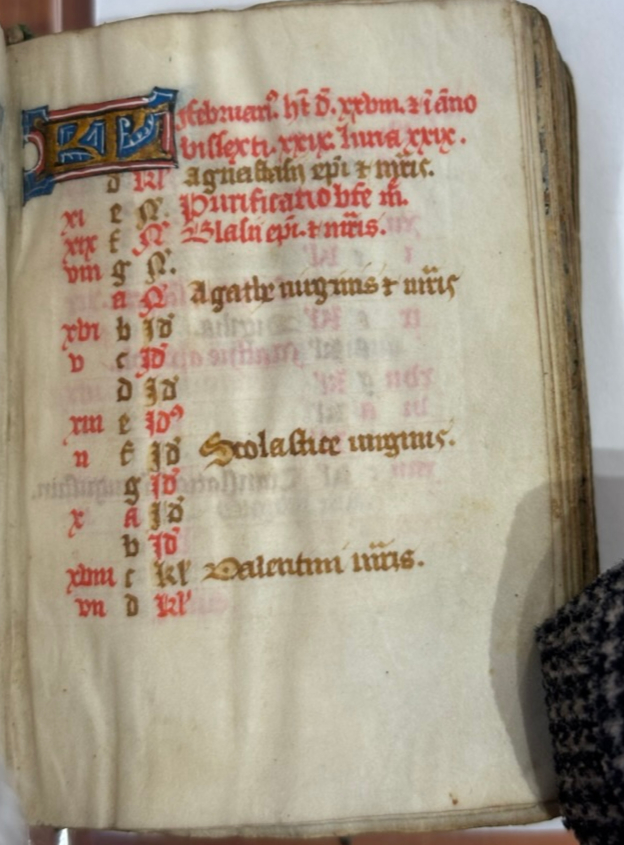 KL februari'. ht d. xxviii. & i āno
bissexti. xxix. luna xxix.
d kl' Agnastasii epi & mris.
xi e N. Purificatio bte m.
xix f N' Blasii epi. & mris.
viii g N.
a N' Agathe uirginis & mris
xvi b Id'
v c Id'
d Id'
xiii e Id'
ii f Id' Scolastice uirginis.
g Id'
x A Id'
b Id'
xviii c kl' Valentini mris.
vii d kl'